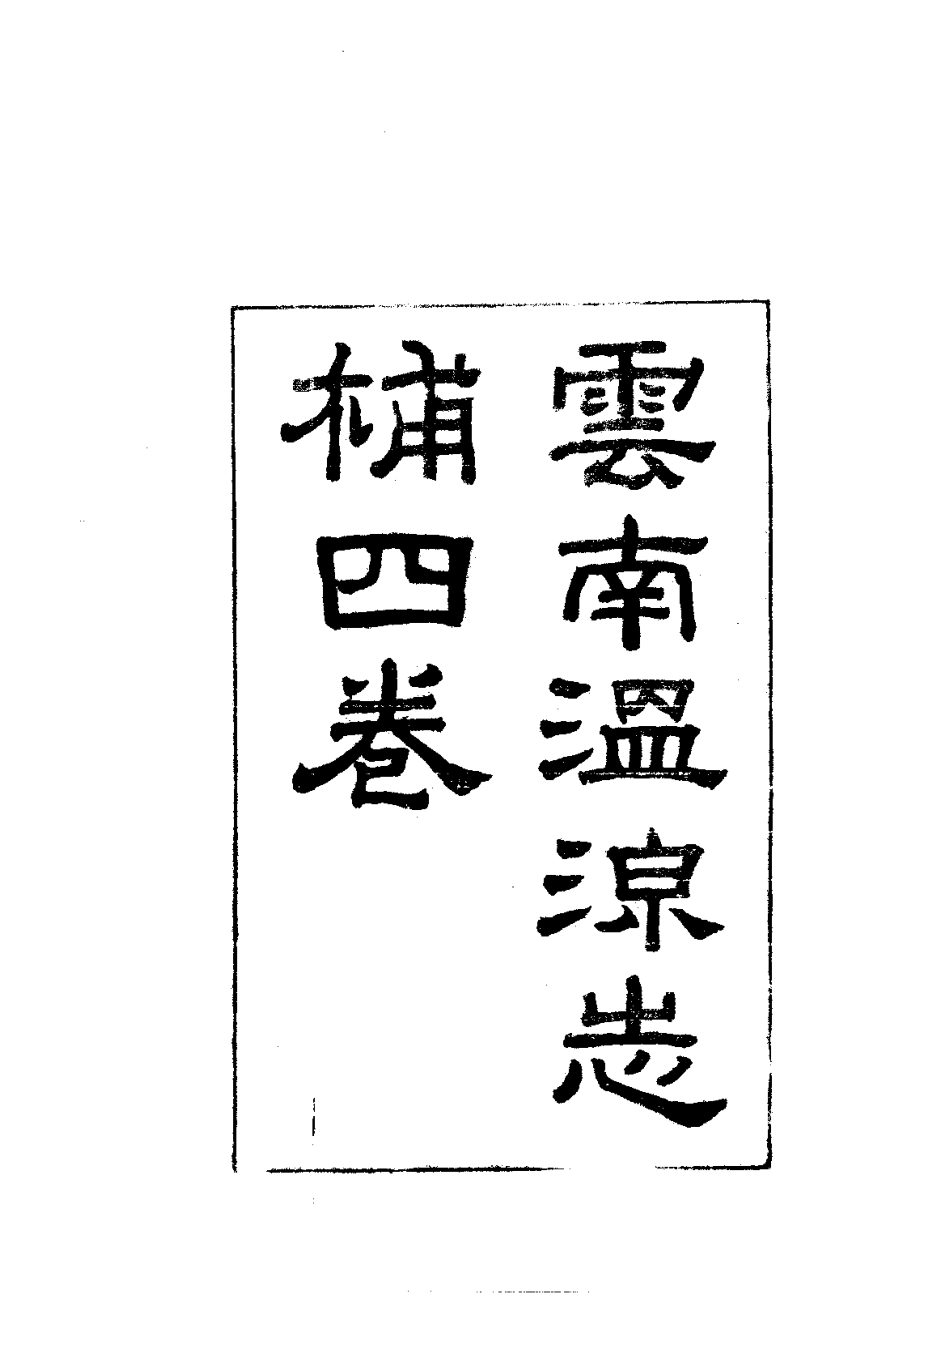 雲南溫涼志
補四卷